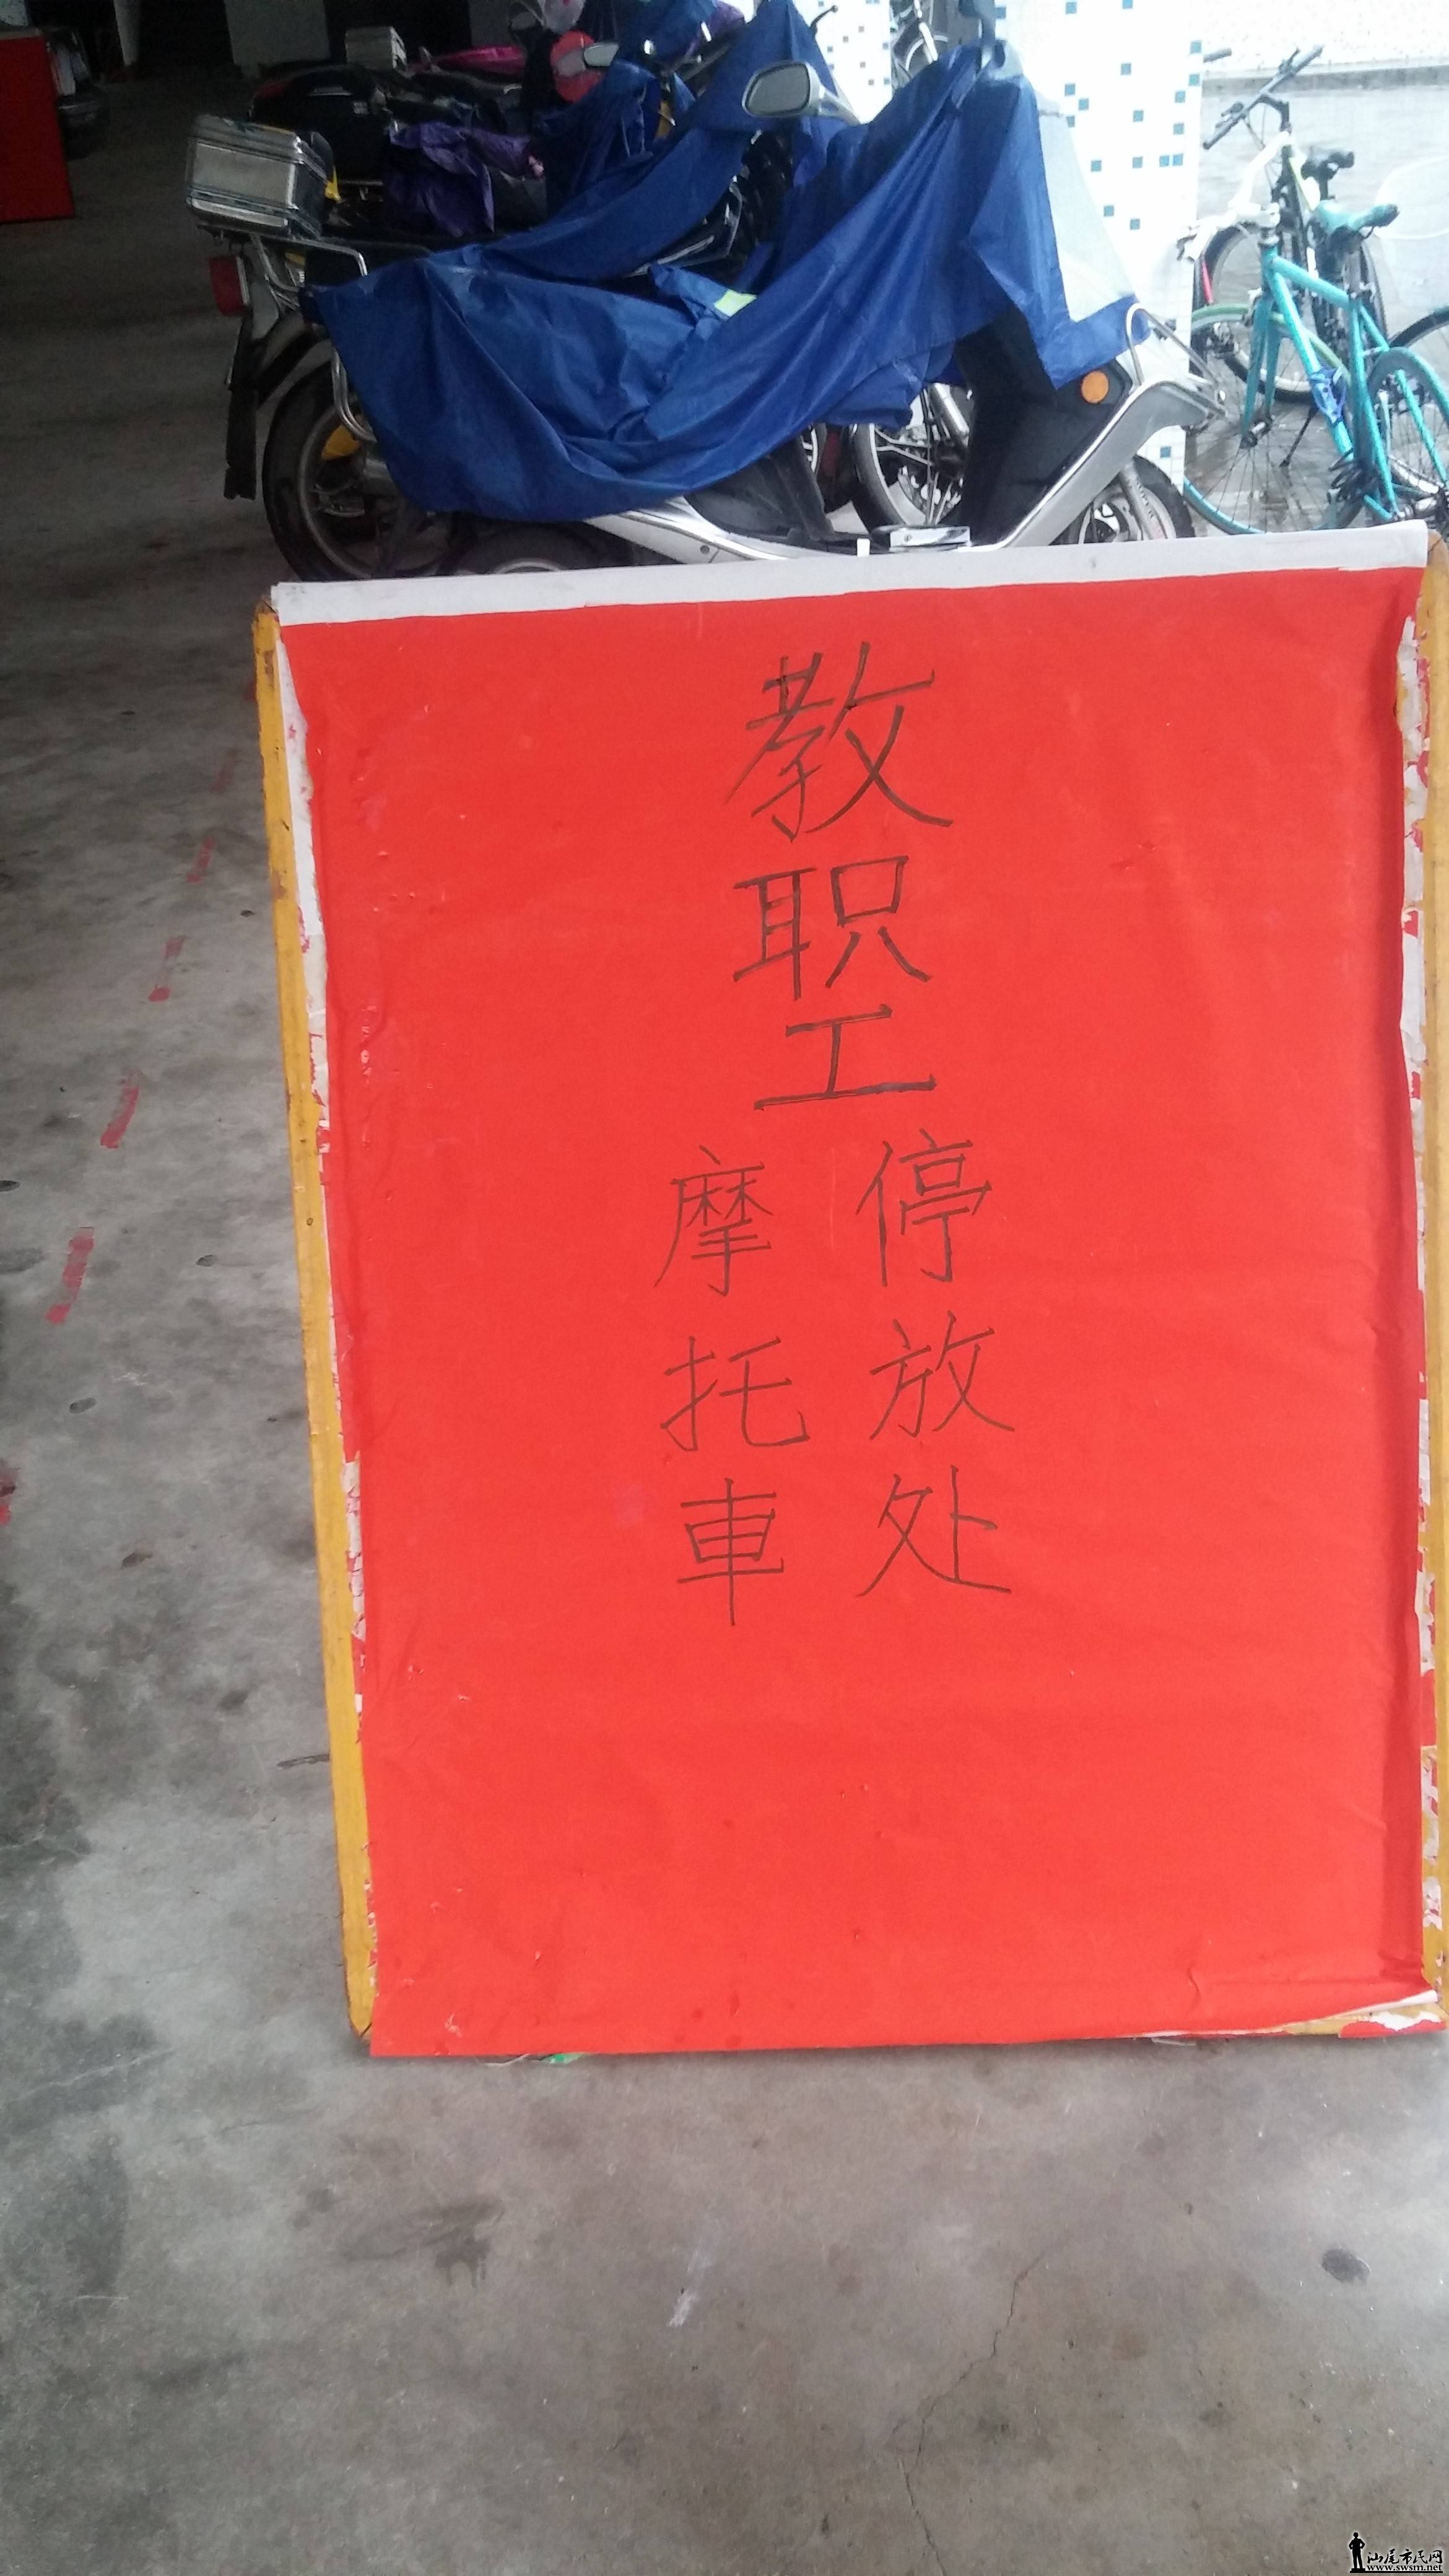 教职工
摩托車
停放处
汕尾市民网
www.swsm.net